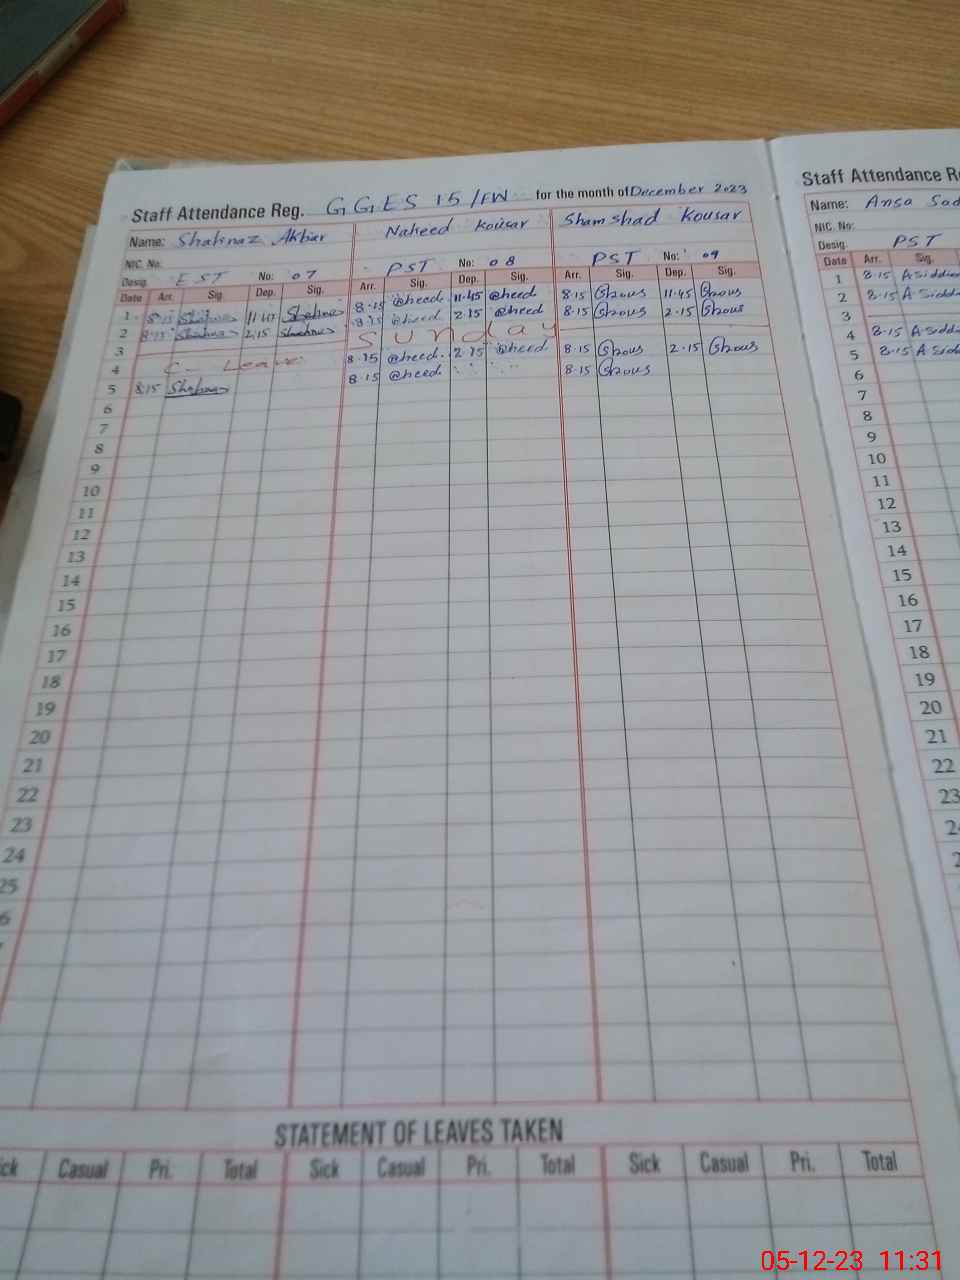 Staff Attendance Reg. GGES 15/FW for the month of December 2023
Name: Shahnaz Akbar Naheed Kousar Shamshad Kousar
NIC. No.
Desig. EST No: 07 PST No: 08 PST No: 09
Date Arr. Sig. Dep. Sig. Arr. Sig. Dep. Sig. Arr. Sig. Dep. Sig.
1 8.15 Shahnaz 11.45 Shahnaz 8.15 @heed. 11.45 @heed. 8.15 11.45
2 8.15 Shahnaz 2.15 Shahnaz 8.15 @heed. 2.15 @heed 8.15 2.15
3 Sunday
4 C- Leave 8.15 @heed. 2.15 @heed. 8.15 2.15
5 8.15 Shahnaz 8.15 @heed. 8.15
6
7
8
9
10
11
12
13
14
15
16
17
18
19
20
21
22
23
24
25
6
STATEMENT OF LEAVES TAKEN
ick Casual Pri. Total Sick Casual Pri. Total Sick Casual Pri. Total
Staff Attendance Re
Name: Ansa Sad
NIC. No:
Desig. PST
Date Arr. Sig.
1 8.15 A Siddi
2 8.15 A Sidd
3
4 8.15 A Sidd
5 8.15 A Sidd
6
7
8
9
10
11
12
13
14
15
16
17
18
19
20
21
22
23
2
2
05-12-23 11:31